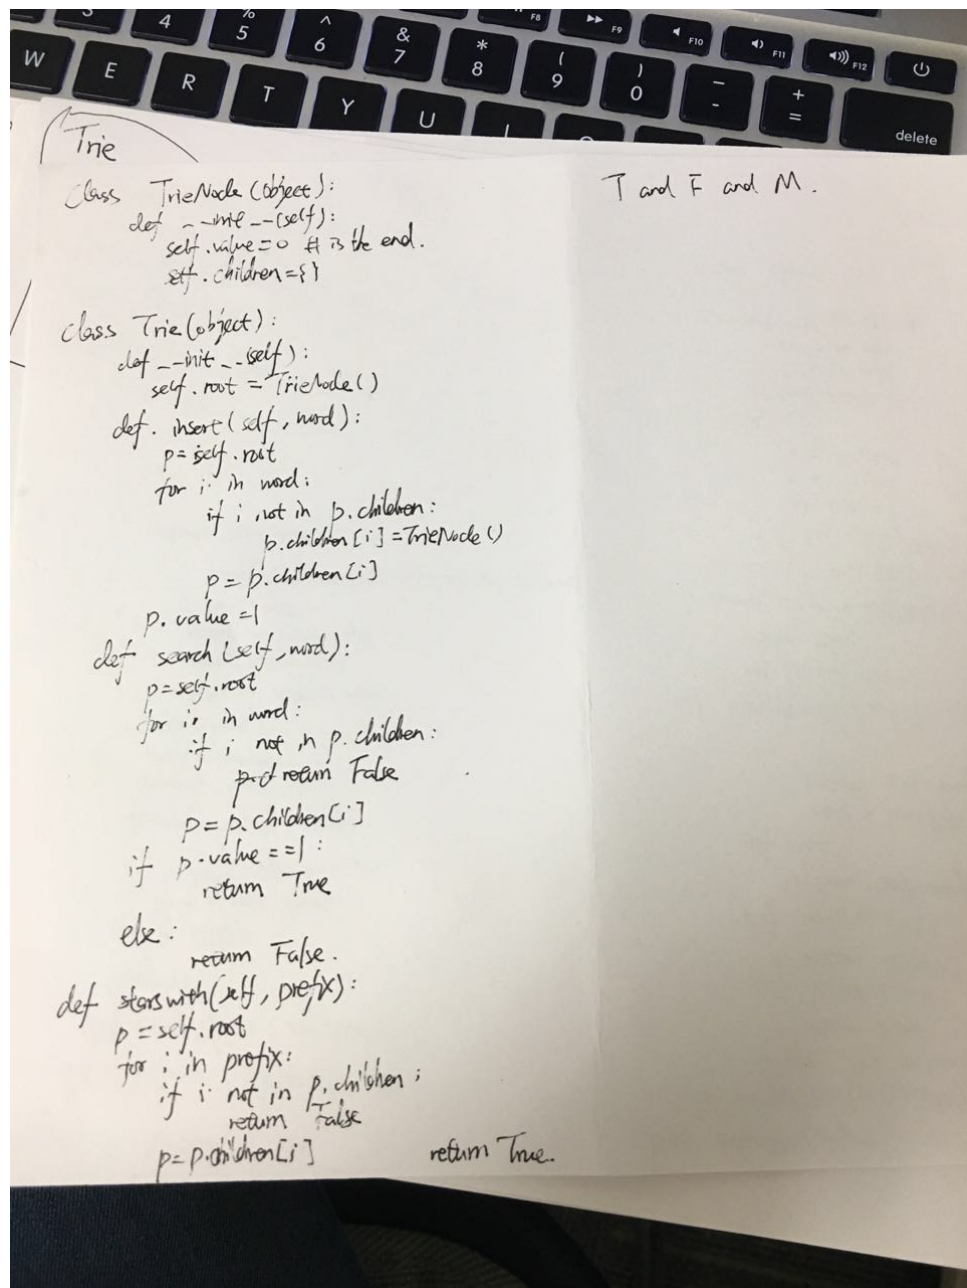 4 % 5 ^ 6 & 7 * 8 ( 9 ) 0 - + =
F8 F9 F10 F11 F12
W E R T Y U I
delete
Trie
class TrieNode(object):
def __init__(self):
self.value=0 # is the end.
self.children={}
class Trie(object):
def __init__(self):
self.root = TrieNode()
def. insert(self, word):
p=self.root
for i in word:
if i not in p.children:
p.children[i]=TrieNode()
p = p.children[i]
p.value=1
def search(self, word):
p=self.root
for i in word:
if i not in p.children:
return False
p=p.children[i]
if p.value==1:
return True
else:
return False.
def starswith(self, prefix):
p=self.root
for i in prefix:
if i not in p.children:
return False
p=p.children[i] return True.
T and F and M.